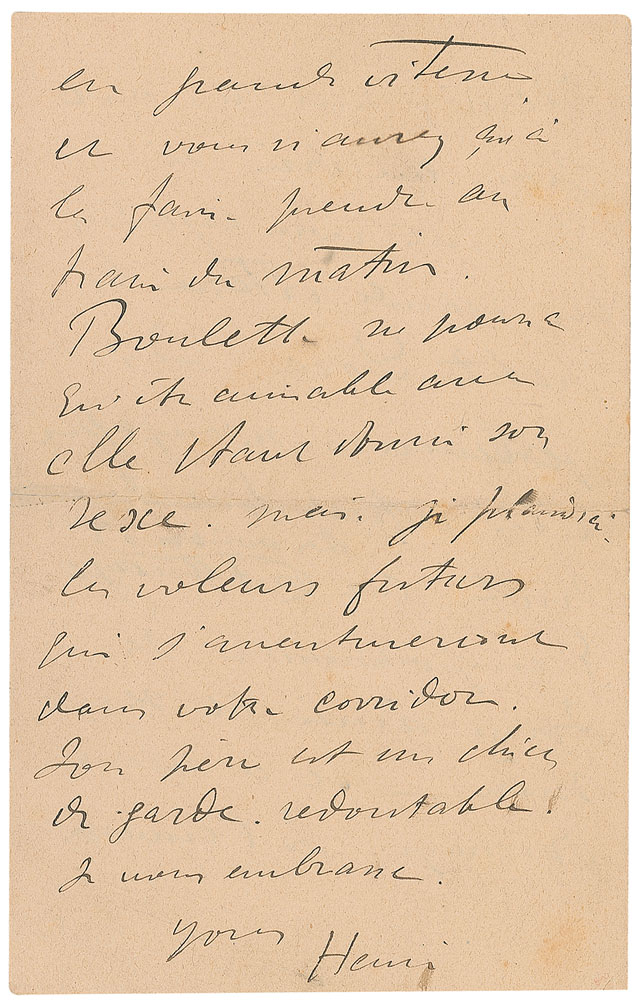 en grande vitesse
et vous n'aurez qu'à
le faire prendre au
train du matin.
Boulette ne pourra
qu'être aimable avec
elle étant donné son
sexe. mais. je plaindrai
les voleurs futurs
qui s'aventureront
dans votre corridor.
Son père est un chien
de garde. redoutable.
Je vous embrasse.
Yours
Henri